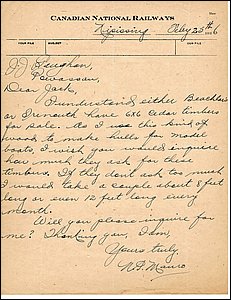 CANADIAN NATIONAL RAILWAYS
YOUR FILE SUBJECT OUR FILE
Nipissing 26th 6
J.J. Vaughan,
Powassan
Dear Jack,
I understand either
or have 6x6 Cedar timbers
for sale. As I use this kind of
wood to make hulls for model
boats, I wish you would inquire
how much they ask for these
timbers. If they dont ask too much
I would take a couple about 8 feet
long or even 12 feet long every
month.
Will you please inquire for
me? Thanking you, I am,
Yours truly